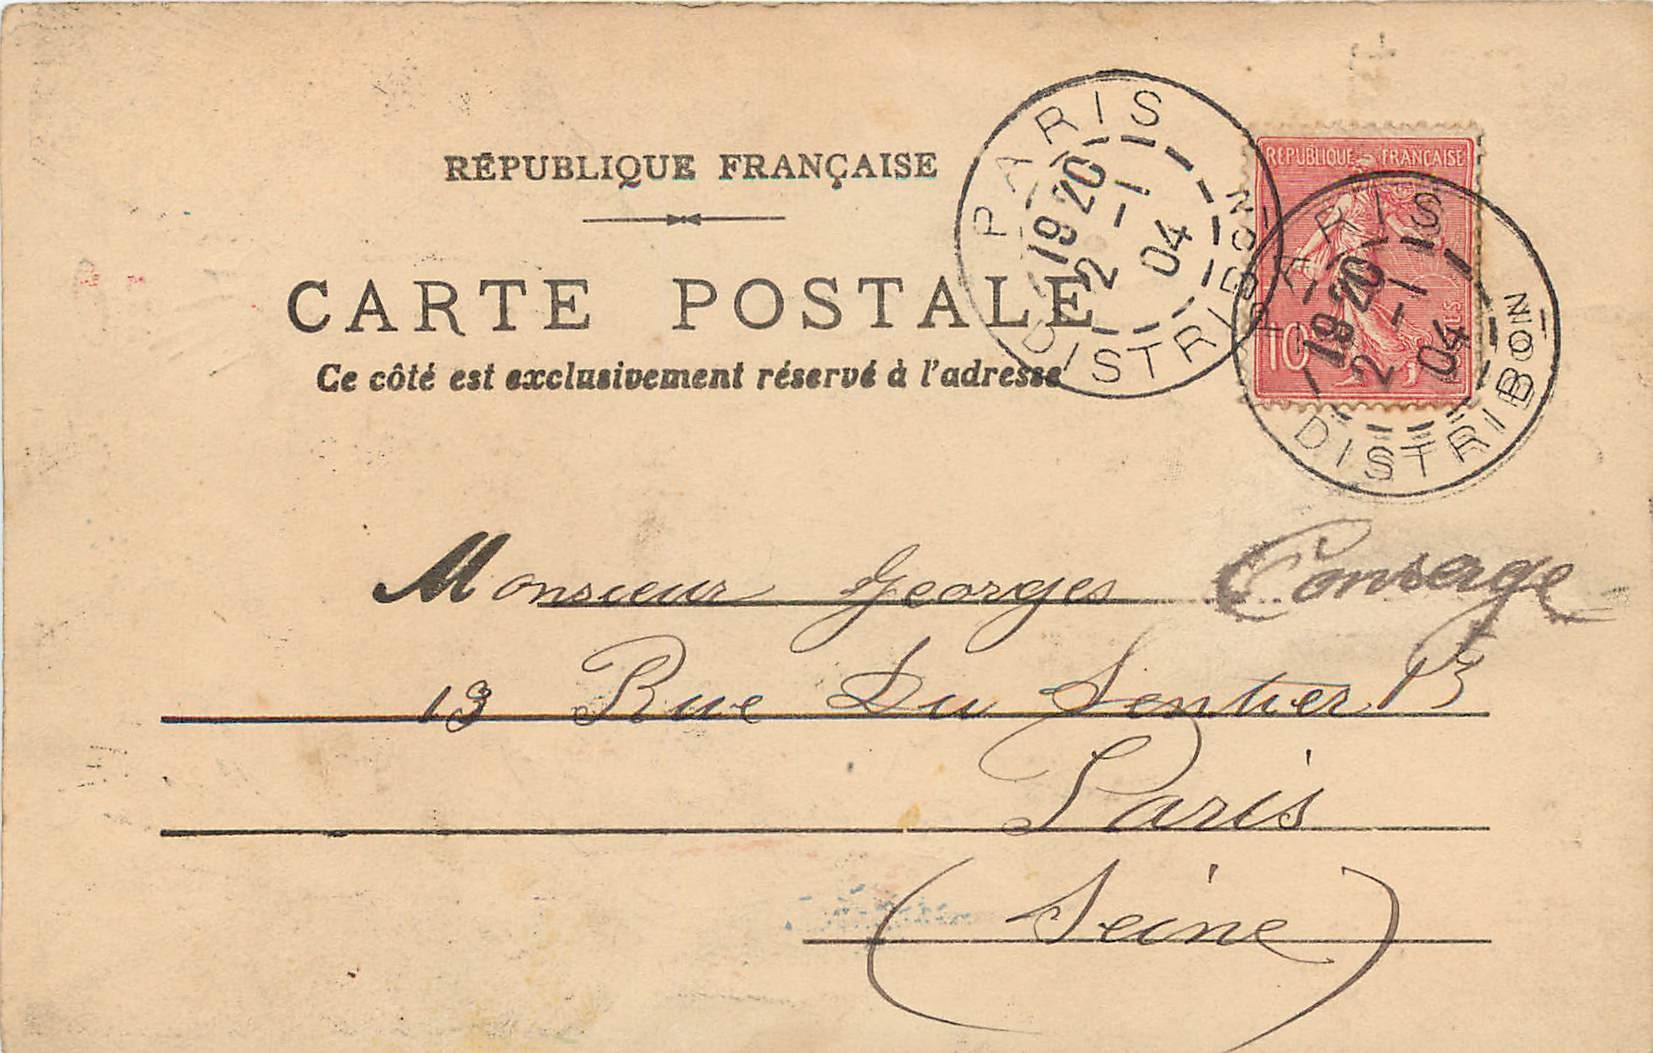 RÉPUBLIQUE FRANÇAISE
CARTE POSTALE
Ce côté est exclusivement réservé à l'adresse
PARIS
19 20
2 -1
04
DISTRIBON
REPUBLIQUE FRANÇAISE
10
PARIS
19 20
2 -1
04
DISTRIBON
Monsieur Georges Conserge
13 Rue Du Sentier 13
Paris
(Seine)